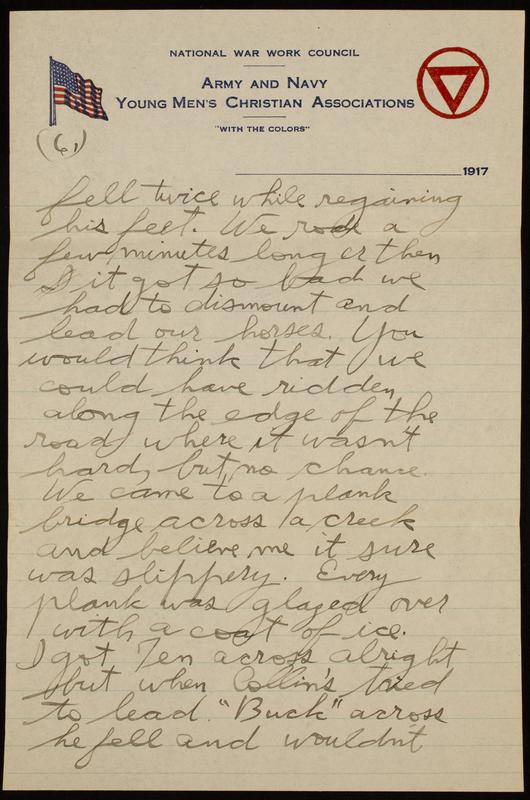 NATIONAL WAR WORK COUNCIL
ARMY AND NAVY
YOUNG MEN'S CHRISTIAN ASSOCIATIONS
"WITH THE COLORS"
(6)
1917
fell twice while regaining
his feet. We rode a
few minutes longer then
it got so bad we
had to dismount and
lead our horses. You
would think that we
could have ridden
along the edge of the
road where it wasn't
hard, but no chance.
We came to a plank
bridge across a creek
and believe me it sure
was slippery. Every
plank was glazed over
with a coat of ice.
I got Ten across alright
but when Collin's tried
to lead "Buck" across
he fell and wouldn't